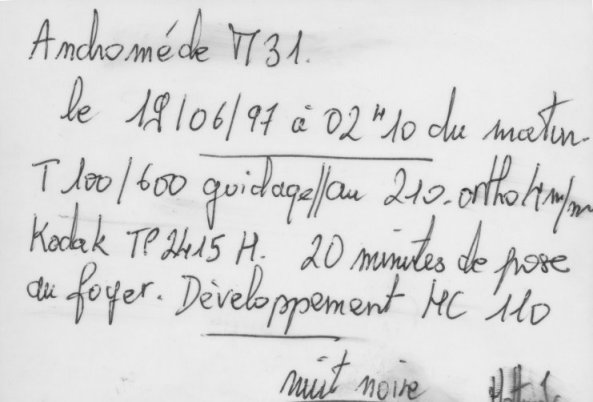 Andromède M31.
le 19/06/97 à 02H10 du matin.
T 100/600 guidage // au 210. ortho 4 m/m
Kodak TP 2415 H. 20 minutes de pose
au foyer. Développement HC 110
nuit noire